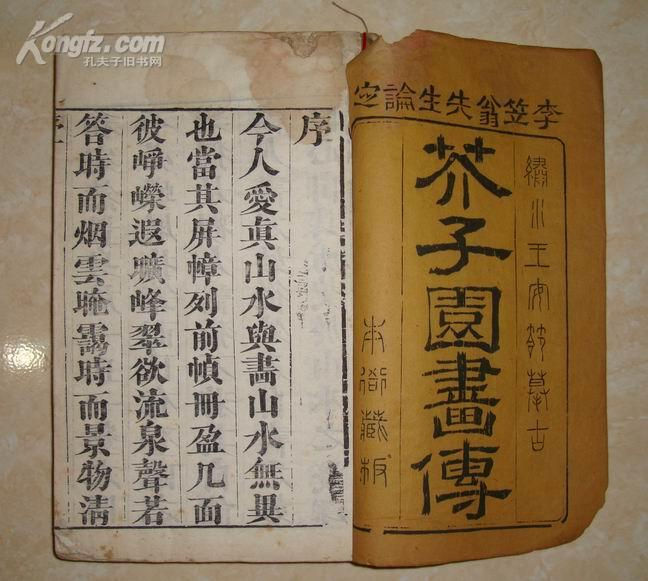 Kongfz.com
孔夫子旧书网
李笠翁先生論定
繡水王安節摹古
芥子園畫傳
本衙藏板
序
今人愛真山水與畫山水無異
也當其屏幛列前幀冊盈几面
彼崢嶸遐曠峰翠欲流泉聲若
答時而烟雲晻靄時而景物清